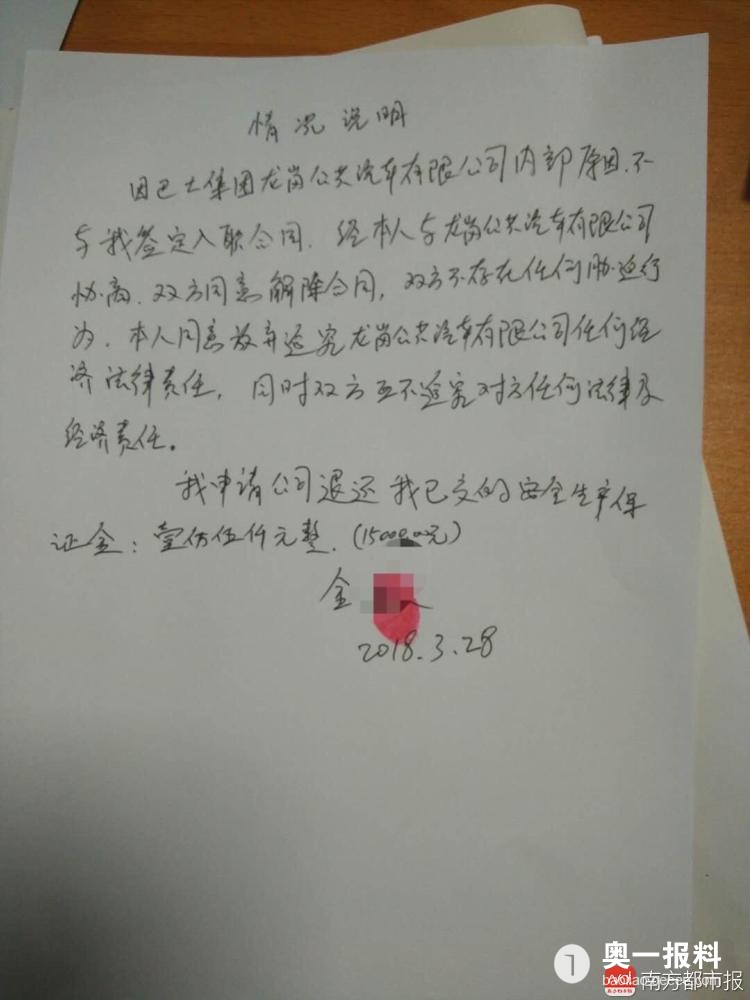 情况说明
因巴士集团龙岗公共汽车有限公司内部原因.不
与我签定入职合同.经本人与龙岗公共汽车有限公司
协商.双方同意解除合同,双方不存在任何胁迫行
为.本人同意放弃追究龙岗公共汽车有限公司任何经
济法律责任,同时双方互不追究对方任何法律及
经济责任。
我申请公司退还我已交的安全生产保
证金:壹仿伍仟元整.(15000.00元)
金
2018.3.28
奥一报料
南方都市报